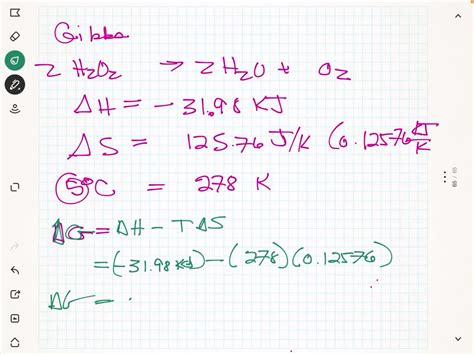 Gibbs
2 H2O2 → 2 H2O + O2
ΔH = - 31.98 KJ
ΔS = 125.76 J/K (0.12576 KJ/K
5°C = 278 K
ΔG = ΔH - TΔS
= (-31.98 KJ) - (278)(0.12576)
ΔG = -